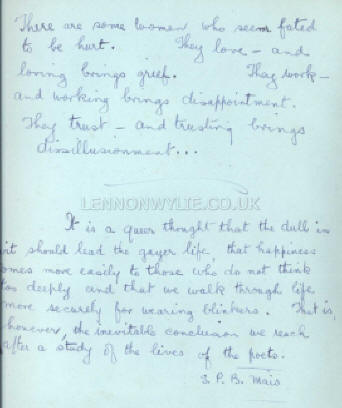 There are some women who seem fated
to be hurt. They love - and
loving brings grief. They work -
and working brings disappointment.
They trust - and trusting brings
dissillusionment...
LENNONWYLIE.CO.UK
It is a queer thought that the dull in
it should lead the gayer life, that happiness
omes more easily to those who do not think
too deeply and that we walk through life
more securely for wearing blinkers. That is,
however, the inevitable conclusion we reach
after a study of the lives of the poets.
S. P. B. Mais